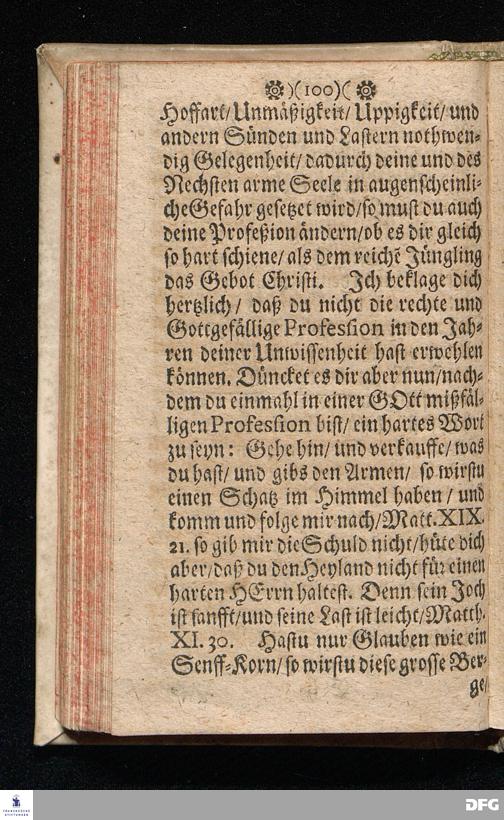 )(100)(
Hoffart/ Unmäßigkeit/ Uppigkeit/ und
andern Sünden und Lastern nothwen-
dig Gelegenheit/ dadurch deine und des
Nechsten arme Seele in augenscheinli-
che Gefahr gesetzet wird/ so must du auch
deine Profeßion ändern/ ob es dir gleich
so hart schiene/ als dem reichē Jüngling
das Gebot Christi. Ich beklage dich
hertzlich/ daß du nicht die rechte und
Gottgefällige Profession in den Jah-
ren deiner Unwissenheit hast erwehlen
können. Düncket es dir aber nun/ nach-
dem du einmahl in einer GOtt mißfäl-
ligen Profession bist/ ein hartes Wort
zu seyn: Gehe hin/ und verkauffe/ was
du hast/ und gibs den Armen/ so wirstu
einen Schatz im Himmel haben/ und
komm und folge mir nach/ Matt. XIX.
21. so gib mir die Schuld nicht/ hüte dich
aber/ daß du den Heyland nicht für einen
harten HErrn haltest. Denn sein Joch
ist sanfft/ und seine Last ist leicht/ Matth.
XI. 30. Hastu nur Glauben wie ein
Senff-Korn/ so wirstu diese grosse Ber-
ge/
FRANCKESCHE
STIFTUNGEN
DFG